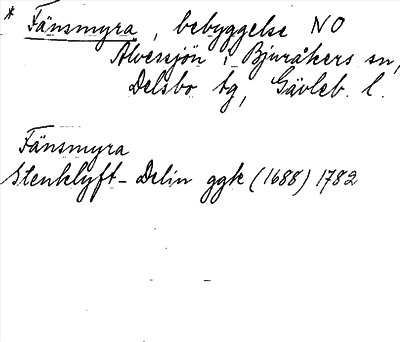 * Fänsmyra, bebyggelse NO
Alvessjön i Bjuråkers sn,
Delsbo tg, Gävleb. l.
Fänsmyra
Stenklyft- Delin ggk (1688) 1782